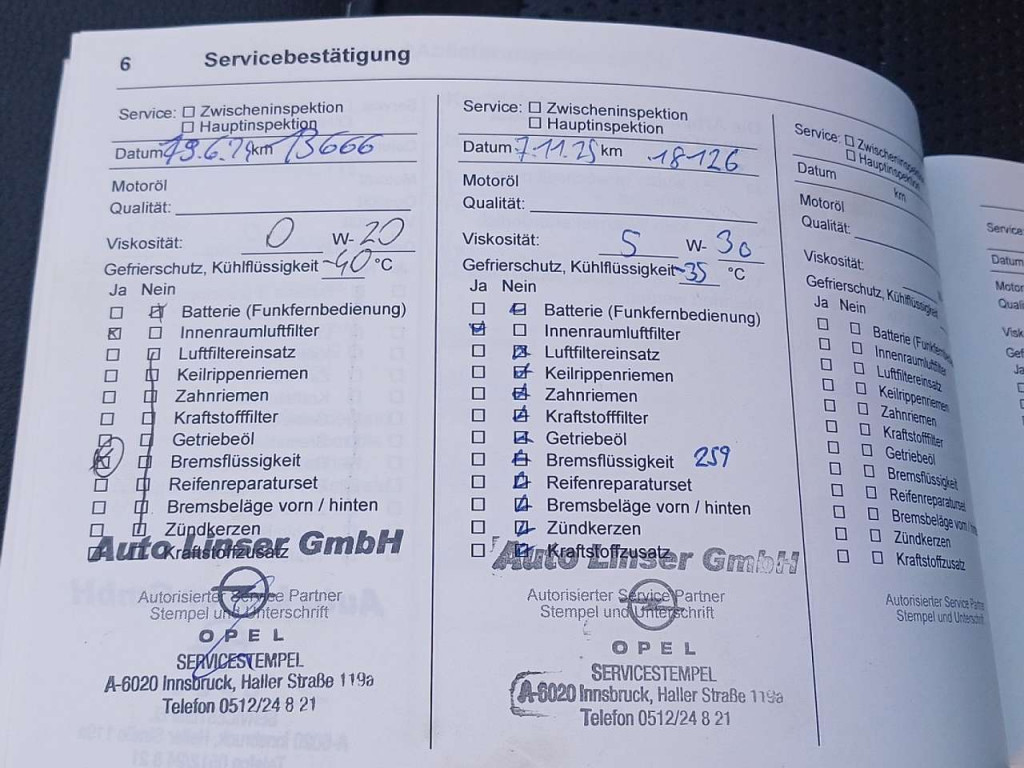 6 Servicebestätigung
Service: Zwischeninspektion
Hauptinspektion
Datum 19.6.24 km 13666
Motoröl
Qualität:
Viskosität: 0 W- 20
Gefrierschutz, Kühlflüssigkeit -40 °C
Ja Nein
Batterie (Funkfernbedienung)
Innenraumluftfilter
Luftfiltereinsatz
Keilrippenriemen
Zahnriemen
Kraftstofffilter
Getriebeöl
Bremsflüssigkeit
Reifenreparaturset
Bremsbeläge vorn / hinten
Zündkerzen
Kraftstoffzusatz
Auto Linser GmbH
Autorisierter Service Partner
Stempel und Unterschrift
OPEL
SERVICESTEMPEL
A-6020 Innsbruck, Haller Straße 119a
Telefon 0512/24 8 21
Service: Zwischeninspektion
Hauptinspektion
Datum 7.11.25 km 18126
Motoröl
Qualität:
Viskosität: 5 W- 30
Gefrierschutz, Kühlflüssigkeit -35 °C
Ja Nein
Batterie (Funkfernbedienung)
Innenraumluftfilter
Luftfiltereinsatz
Keilrippenriemen
Zahnriemen
Kraftstofffilter
Getriebeöl
Bremsflüssigkeit 259
Reifenreparaturset
Bremsbeläge vorn / hinten
Zündkerzen
Kraftstoffzusatz
Auto Linser GmbH
Autorisierter Service Partner
Stempel und Unterschrift
OPEL
SERVICESTEMPEL
A-6020 Innsbruck, Haller Straße 119a
Telefon 0512/24 8 21
Service: Zwischeninspektion
Hauptinspektion
Datum km
Motoröl
Qualität:
Viskosität:
Gefrierschutz, Kühlflüssigkeit
Ja Nein
Batterie (Funkfernbe
Innenraumluftfilter
Luftfiltereinsatz
Keilrippenriemen
Zahnriemen
Kraftstofffilter
Getriebeöl
Bremsflüssigkeit
Reifenreparaturset
Bremsbeläge vorn / hin
Zündkerzen
Kraftstoffzusatz
Autorisierter Service Partne
Stempel und Unterschri
Service:
Datum
Motor
Quali
Visk
Gef
Ja